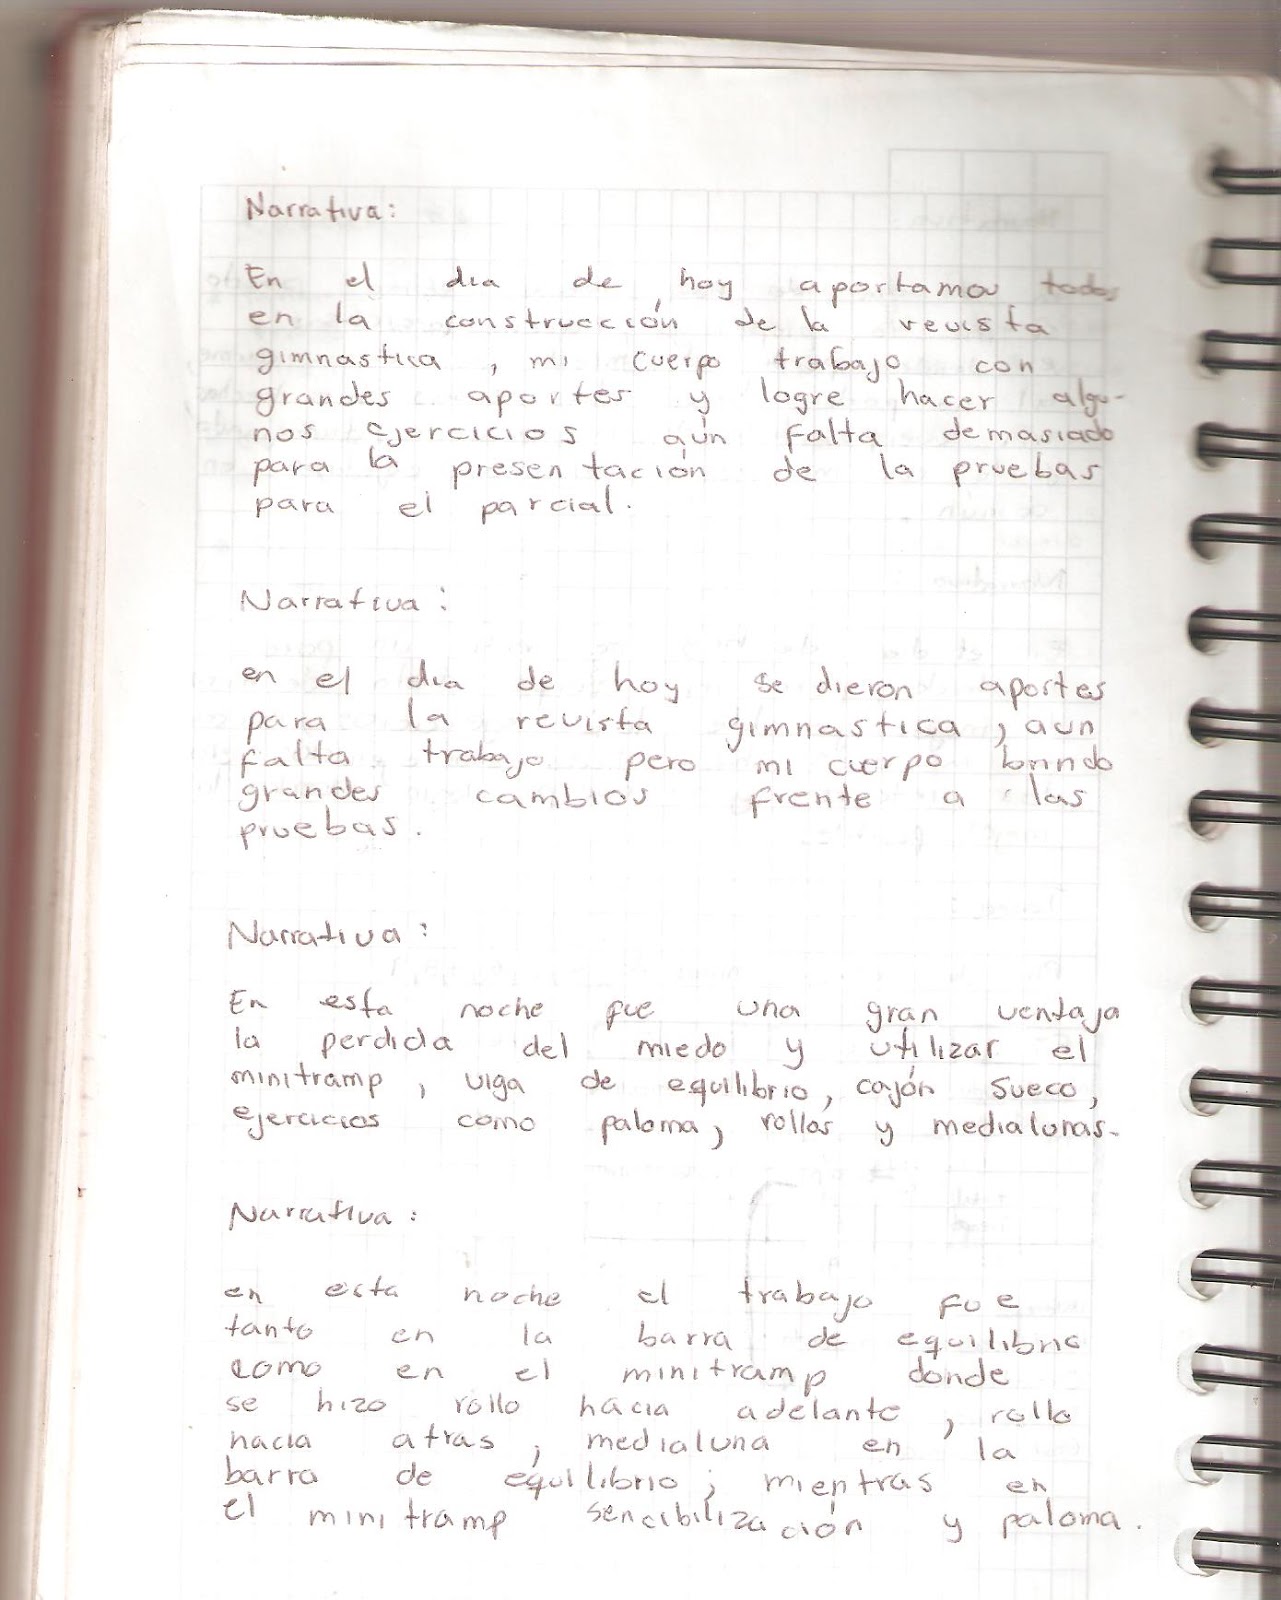 Narrativa:
En el dia de hoy aportamos todos
en la construcción de la revista
gimnastica, mi cuerpo trabajo con
grandes aportes y logre hacer algu-
nos ejercicios aún falta demasiado
para la presentación de la pruebas
para el parcial.
Narrativa:
en el dia de hoy se dieron aportes
para la revista gimnastica, aun
falta trabajo pero mi cuerpo brindo
grandes cambios frente a las
pruebas.
Narrativa:
En esta noche fue una gran ventaja
la perdida del miedo y utilizar el
minitramp, viga de equilibrio, cajón sueco,
ejercicios como paloma, rollos y medialunas.
Narrativa:
en esta noche el trabajo fue
tanto en la barra de equilibrio
como en el minitramp donde
se hizo rollo hacia adelante, rollo
hacia atras, medialuna en la
barra de equilibrio; mientras en
el minitramp sencibilización y paloma.